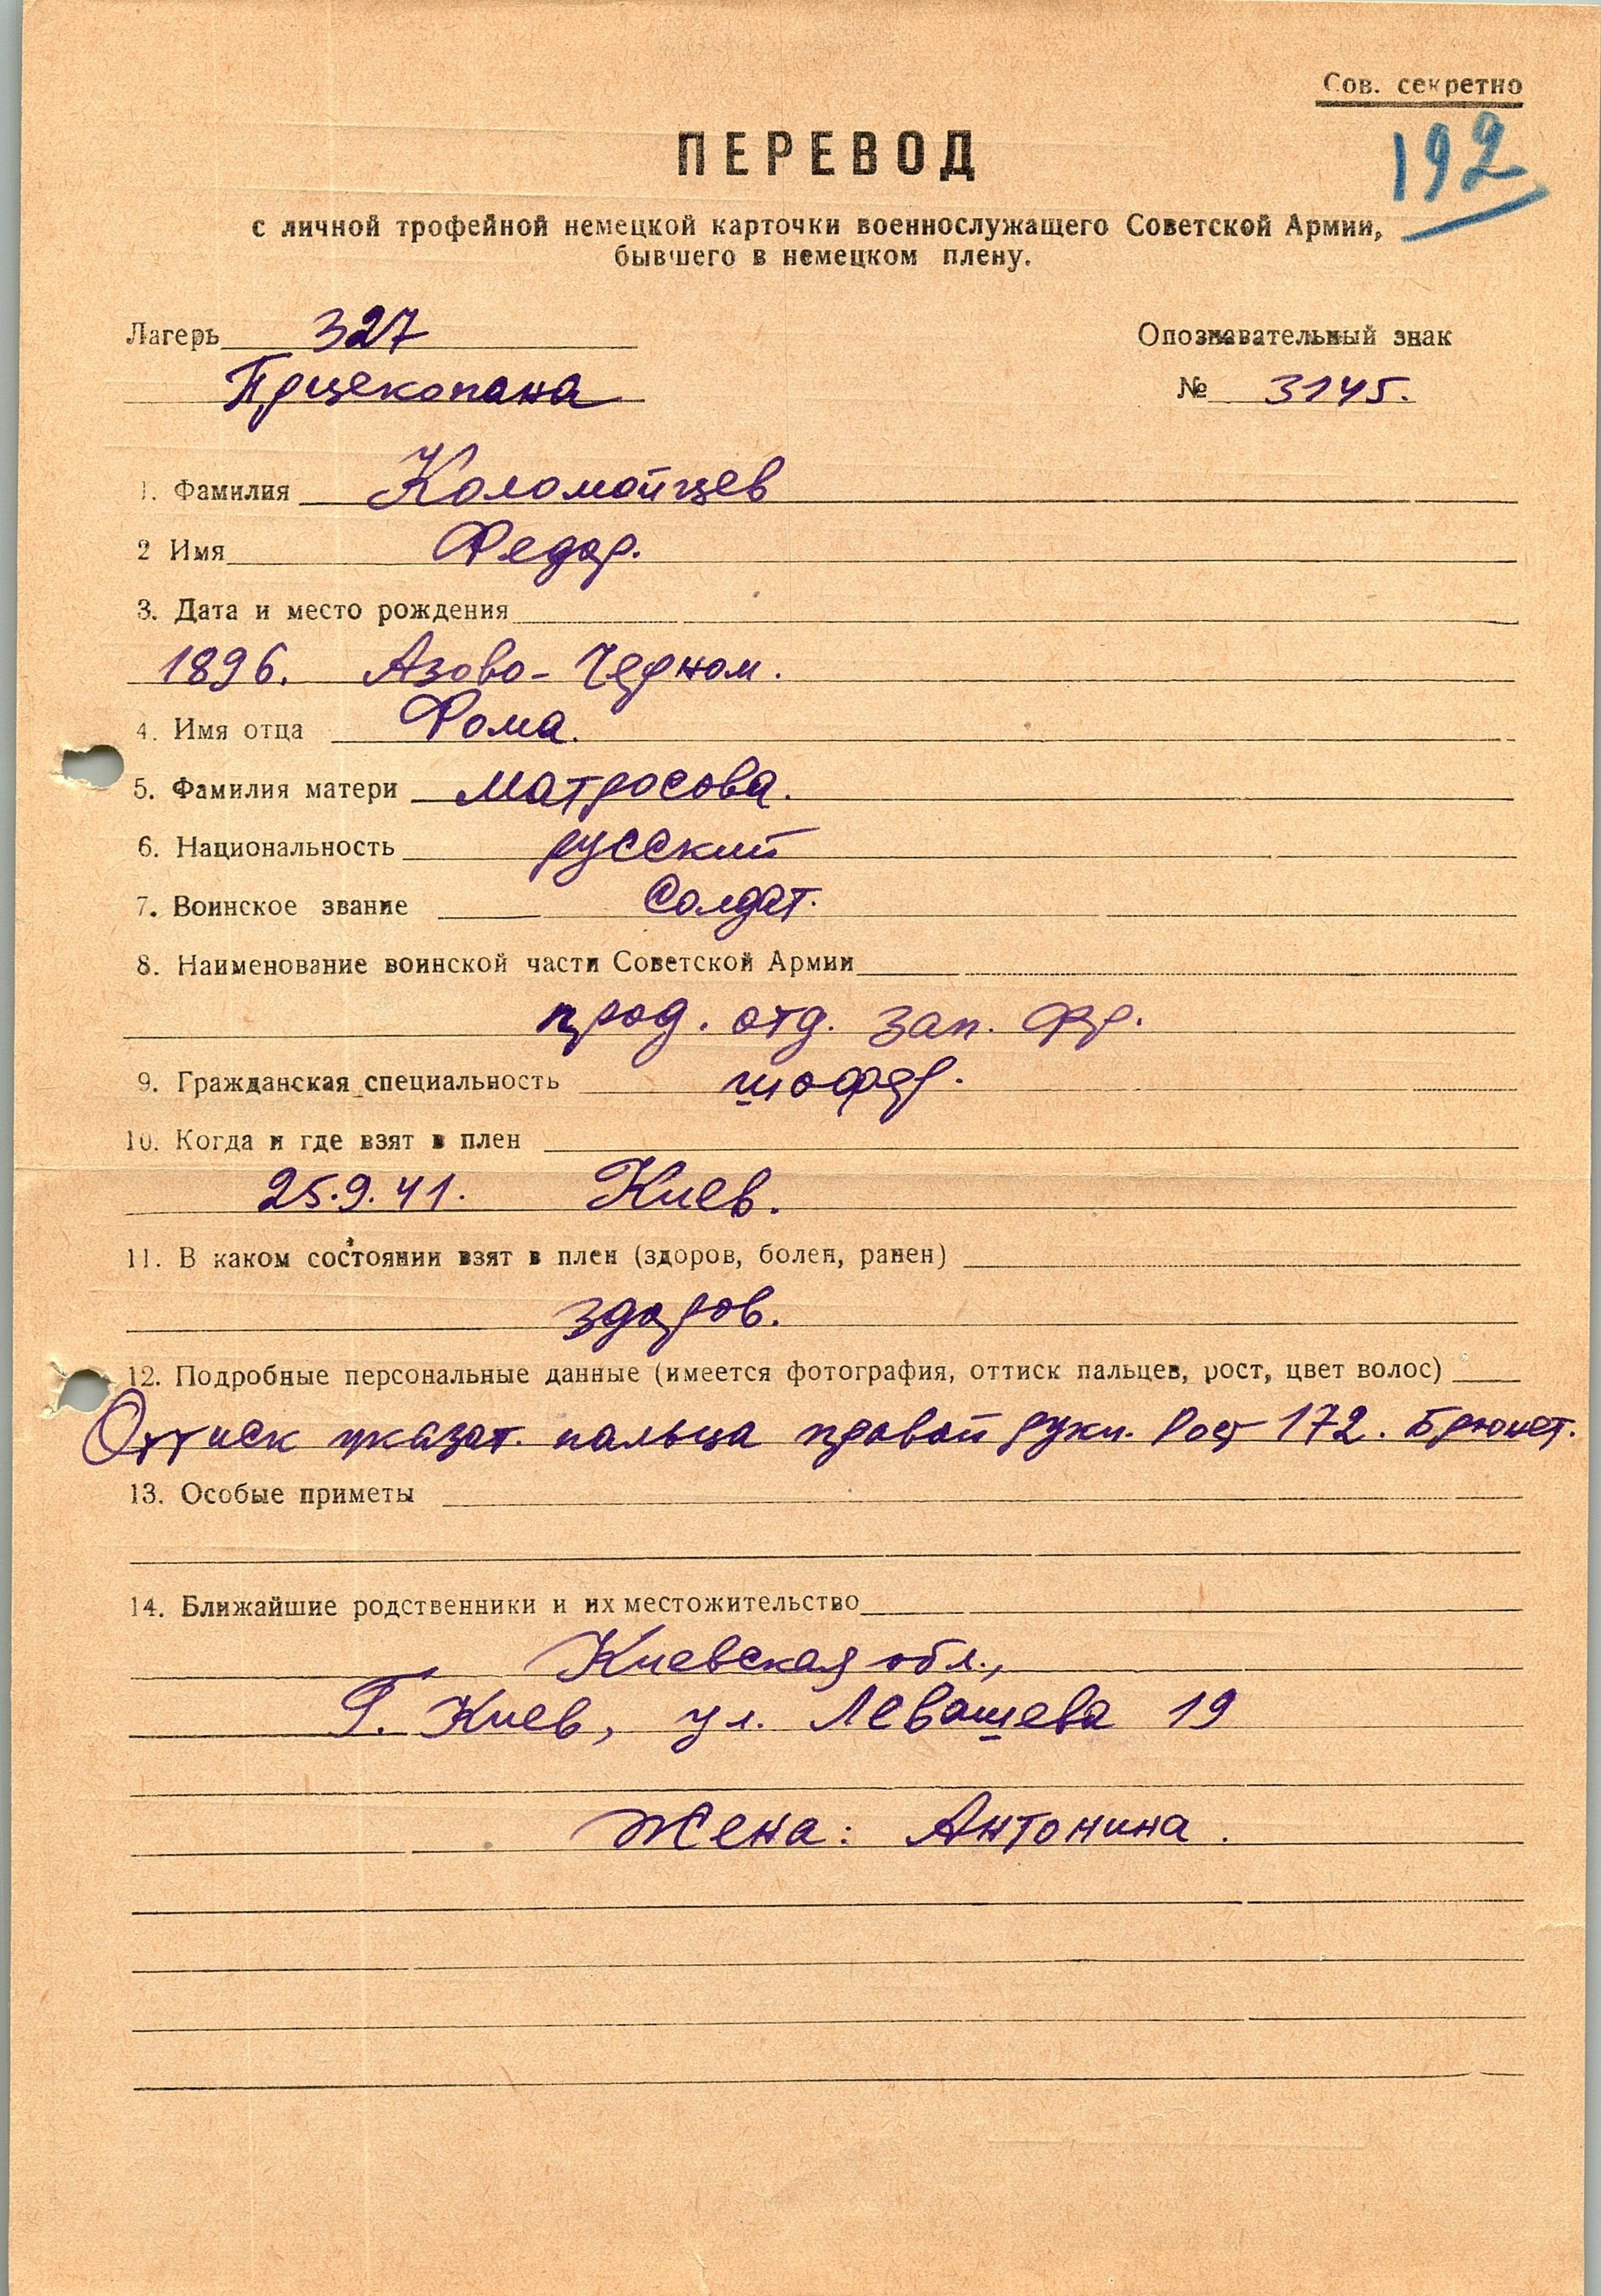 Сов. секретно
192
ПЕРЕВОД
с личной трофейной немецкой карточки военнослужащего Советской Армии,
бывшего в немецком плену.
Лагерь 327
Опознавательный знак
Прцекопана
№ 3145.
1. Фамилия Коломойцев
2 Имя Федор.
3. Дата и место рождения
1896. Азово-Черном.
4. Имя отца Фома.
5. Фамилия матери Матросова.
6. Национальность русский
7. Воинское звание Солдат.
8. Наименование воинской части Советской Армии
прод. отд. зап. фр.
9. Гражданская специальность шофер.
10. Когда и где взят в плен
25.9.41. Киев.
11. В каком состоянии взят в плен (здоров, болен, ранен)
здоров.
12. Подробные персональные данные (имеется фотография, оттиск пальцев, рост, цвет волос)
Оттиск указат. пальца правой руки. Рост 172. Брюнет.
13. Особые приметы
14. Ближайшие родственники и их местожительство
Киевская обл.,
Г. Киев, ул. Левашева 19
Жена: Антонина.